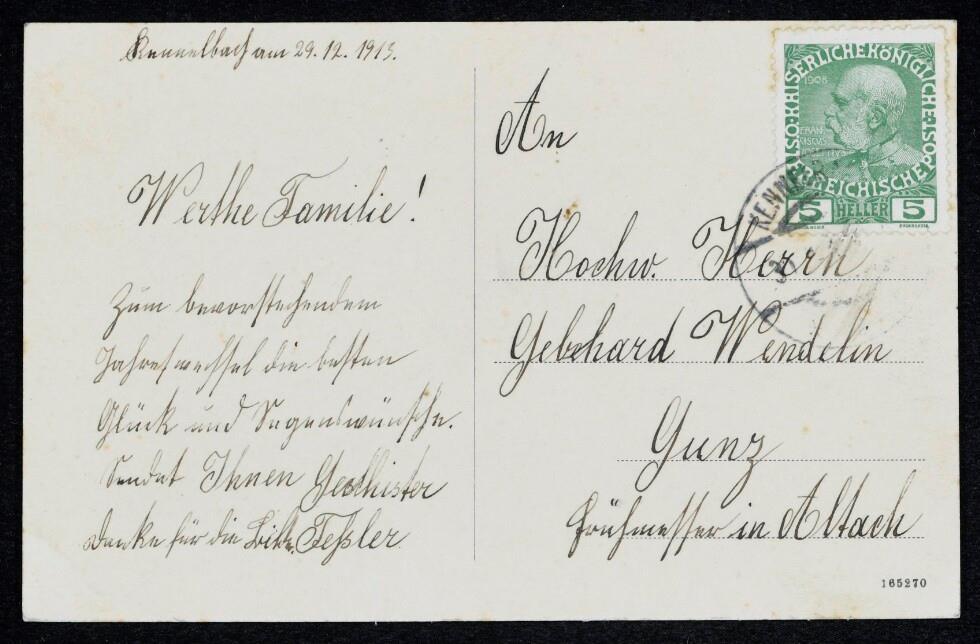 Kennelbach am 29.12.1913.
Werthe Familie!
Zum bevorstehendem
Jahreswechsel die besten
Glück und Segenswünsche.
Sendet Ihnen Geschister
Danke für die Feßler
An
Hochw. Herrn
Gebehard Wendelin
Gunz
Frühmesser in Altach
KAISERLICHEKÖNIGLICHE ÖSTERREICHISCHE POST
1908
FRAN
CISCVS
5 HELLER 5
KENNELB
165270